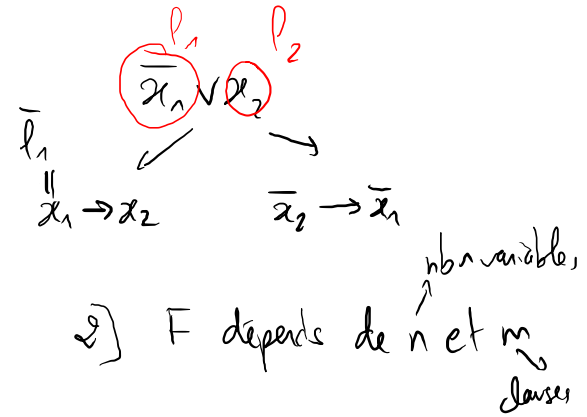 l₁ l₂
x̄₁ ∨ x₂
l̄₁
=
x₁ → x₂ x̄₂ → x̄₁
nbr variables
2) F dépends de n et m
clauses